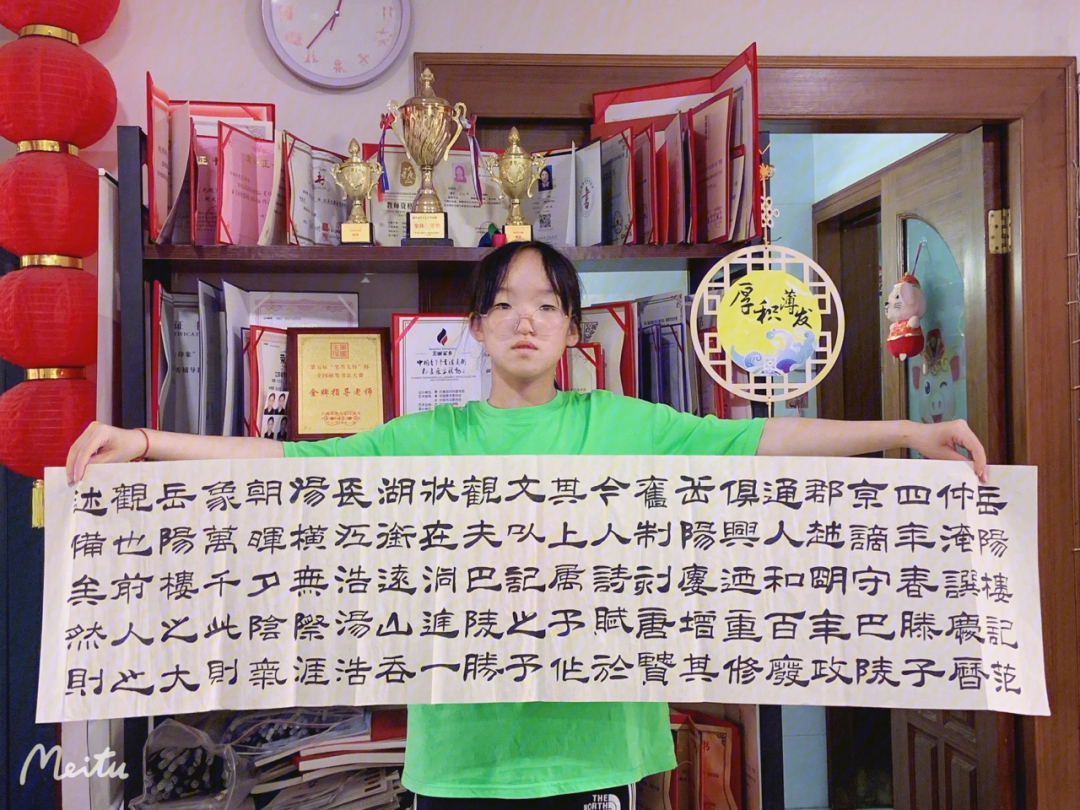 岳陽樓記范
仲淹譔慶曆
四年春滕子
京謫守巴陵
郡越明年政
通人和百廢
俱興迺重修
岳陽廔增其
舊制刻唐賢
今人詩賦於
其上属予作
文以記之予
觀夫巴陵勝
狀在洞庭一
湖銜遠山吞
長江浩湯浩
湯橫無際涯
朝暉夕陰氣
象萬千此則
岳陽樓之大
觀也前人之
述備矣然則
厚积薄发
金牌指导老师
教师资格
THE
NORTH
Meitu